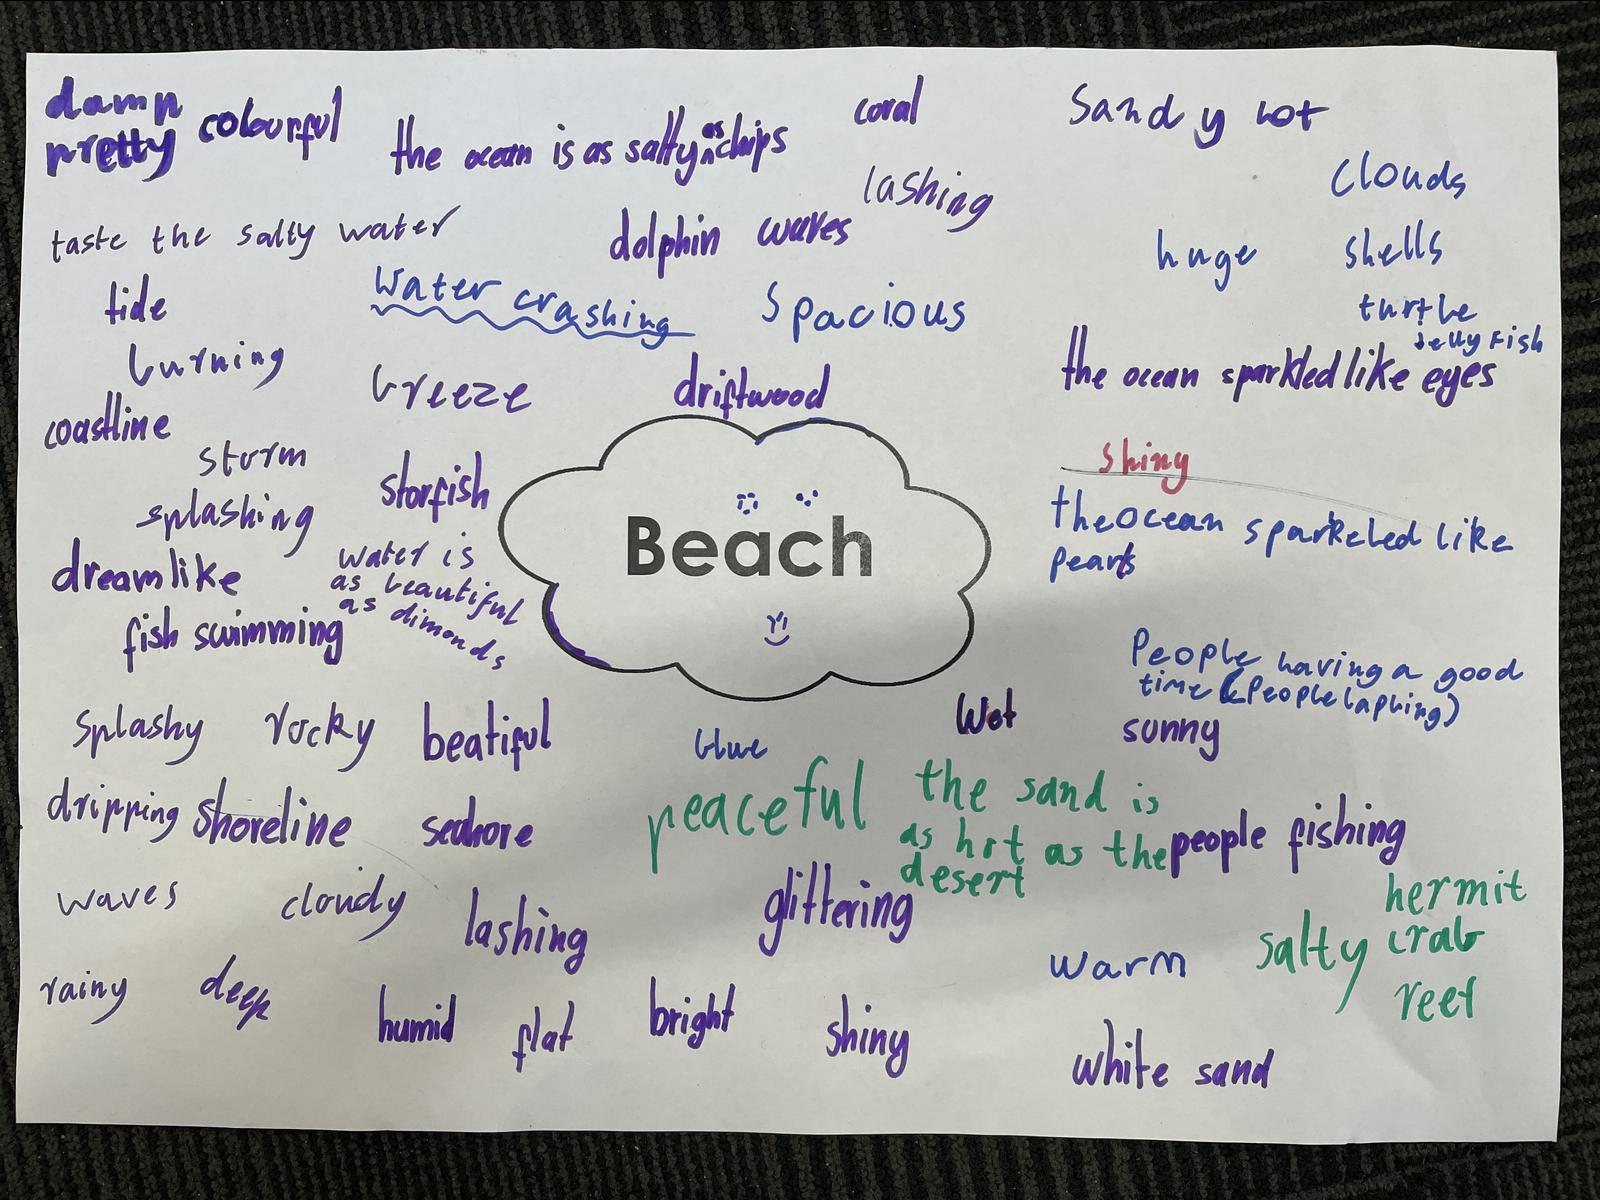 damp
pretty colourful
the ocean is as salty as chips
coral
Sandy hot
clouds
lashing
taste the salty water
dolphin waves
huge
shells
tide
water crashing
Spacious
turtle
Jelly Fish
burning
breeze
driftwood
the ocean sparkled like eyes
coastline
storm
starfish
shiny
splashing
the ocean sparkeled like
pearls
Beach
dreamlike
water is
as beautiful
as dimonds
fish swimming
People having a good
time (People laphing)
Splashy rocky beatiful
blue
Wet
sunny
dripping shoreline
seahore
peaceful
the sand is
as hot as the
desert
people fishing
waves
cloudy
lashing
glittering
hermit
crab
salty
reef
warm
rainy
deep
humid
flat
bright
shiny
white sand